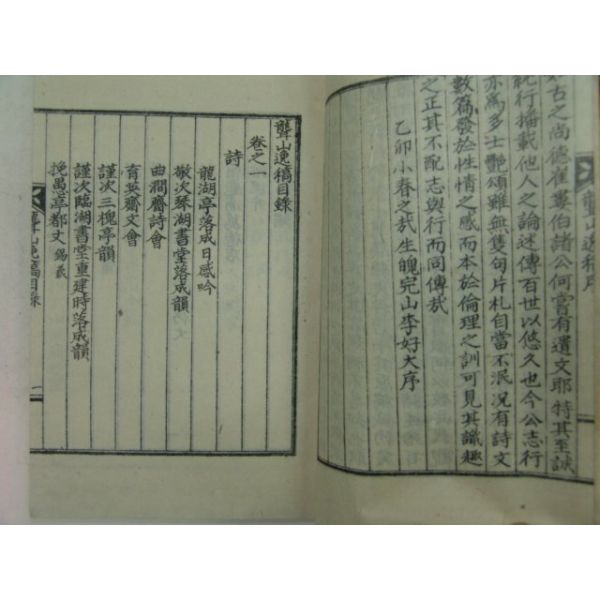 古之尚德崔婁伯諸公何嘗有遺文耶特其至誠
純行播載他人之論述傳百世以悠久也今公志行
亦爲多士艶頌雖無隻句片札自當不泯况有詩文
數篇發於性情之感而本於倫理之訓可見其識趣
之正其不配志與行而同傳哉
乙卯小春之哉生魄完山李好大序
聾山逸稿序
聾山逸稿目錄
卷之一
詩
龍湖亭落成日感吟
敬次琴湖書堂落成韻
曲澗齋詩會
育英齋文會
謹次三槐亭韻
謹次臨湖書堂重建時落成韻
挽愚亭都丈錫義
聾山逸稿目錄
一